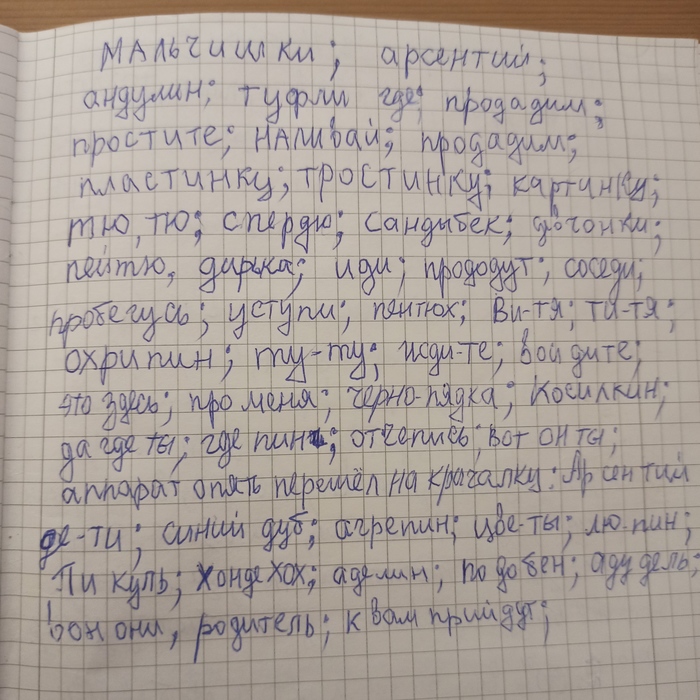 мальчишки; арсентий;
андулин; туфли где; продадим;
простите; наливай; продадим;
пластинку; тростинку; картинку;
тю, тю; спердю; сандыбек; девчонки;
пейтю, дырка; иди; прододут; соседи;
пробегусь; уступи; пентюх; Ви-тя; тя-тя;
охрипин; ту-ту; иди-те; войдите;
это здесь; про меня; черно-пядка; Косилкин;
да где ты; где пин; отчепись; вот он ты;
аппарат опять перешёл на крачалку: Арсентий
де-ти; синий дуб; агрепин; цве-ты; лю-пин;
Пи куль; хонде хох; аделин; подобен; адудель;
вон они, родитель; к вам прийдут;